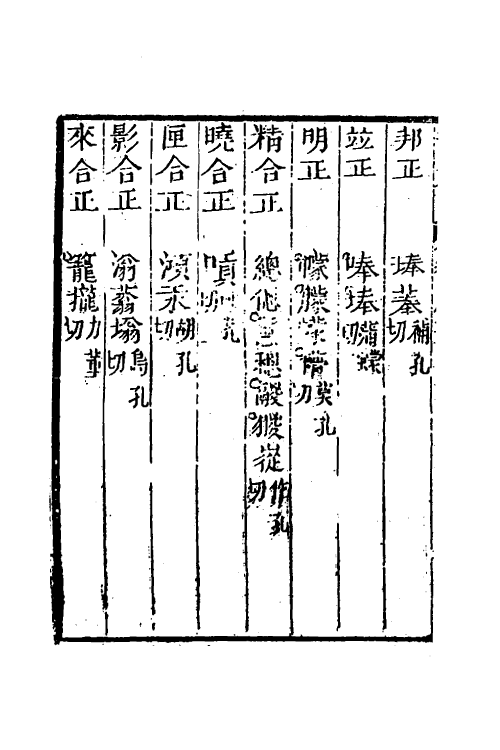 邦正 琫菶補孔切
竝正 唪埲蒲蠓切
明正 幪朦莫孔切
精合正 總作孔切
曉合正 嗊孔切
匣合正 澒汞胡孔切
影合正 滃蓊塕烏孔切
來合正 籠攏力董切